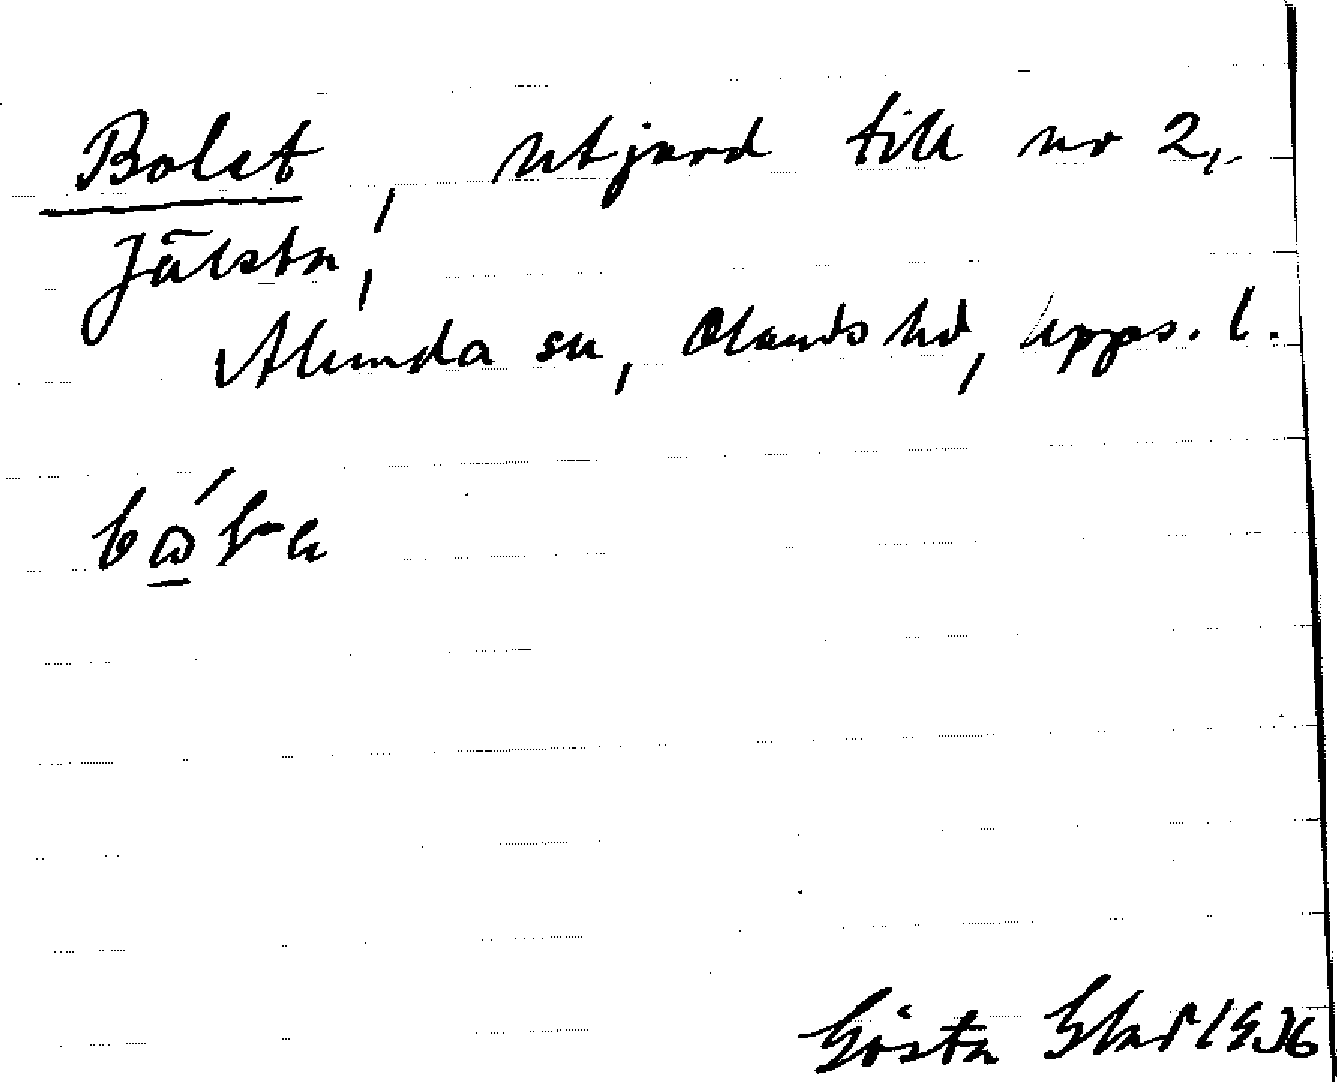 Bolet, utjord till nr 2,
Jälsta,
Alunda sn, Olands hd, Upps. l.
Gösta 1936